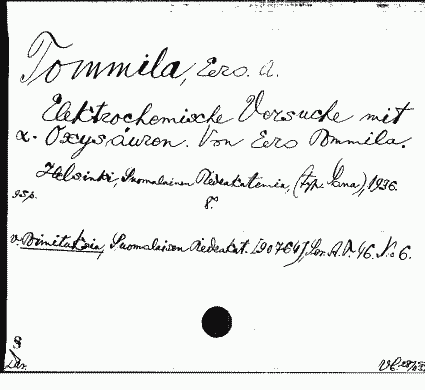 Tommila, Eero. A.
Elektrochemische Versuche mit
α-Oxysäuren. Von Eero Tommila.
Helsinki, Suomalainen Tiedeakatemia, (typ. Sana), 1936.
95 p. 8°.
v. Toimituksia, Suomalaisen Tiedeakat. [90764], Ser. A. T. 46. No 6.
S